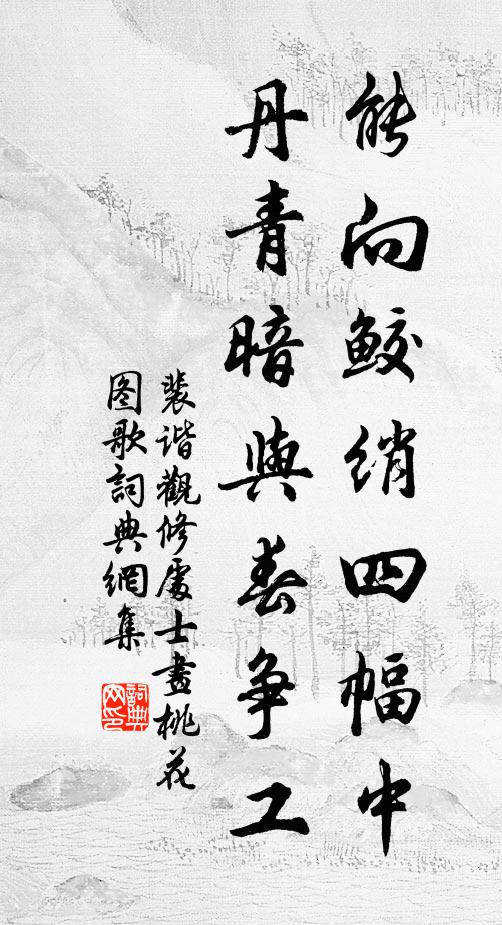 能向鲛绡四幅中
丹青暗與春争工
裴谐觀修處士畫桃花
图歌詞典網集
詞典网印